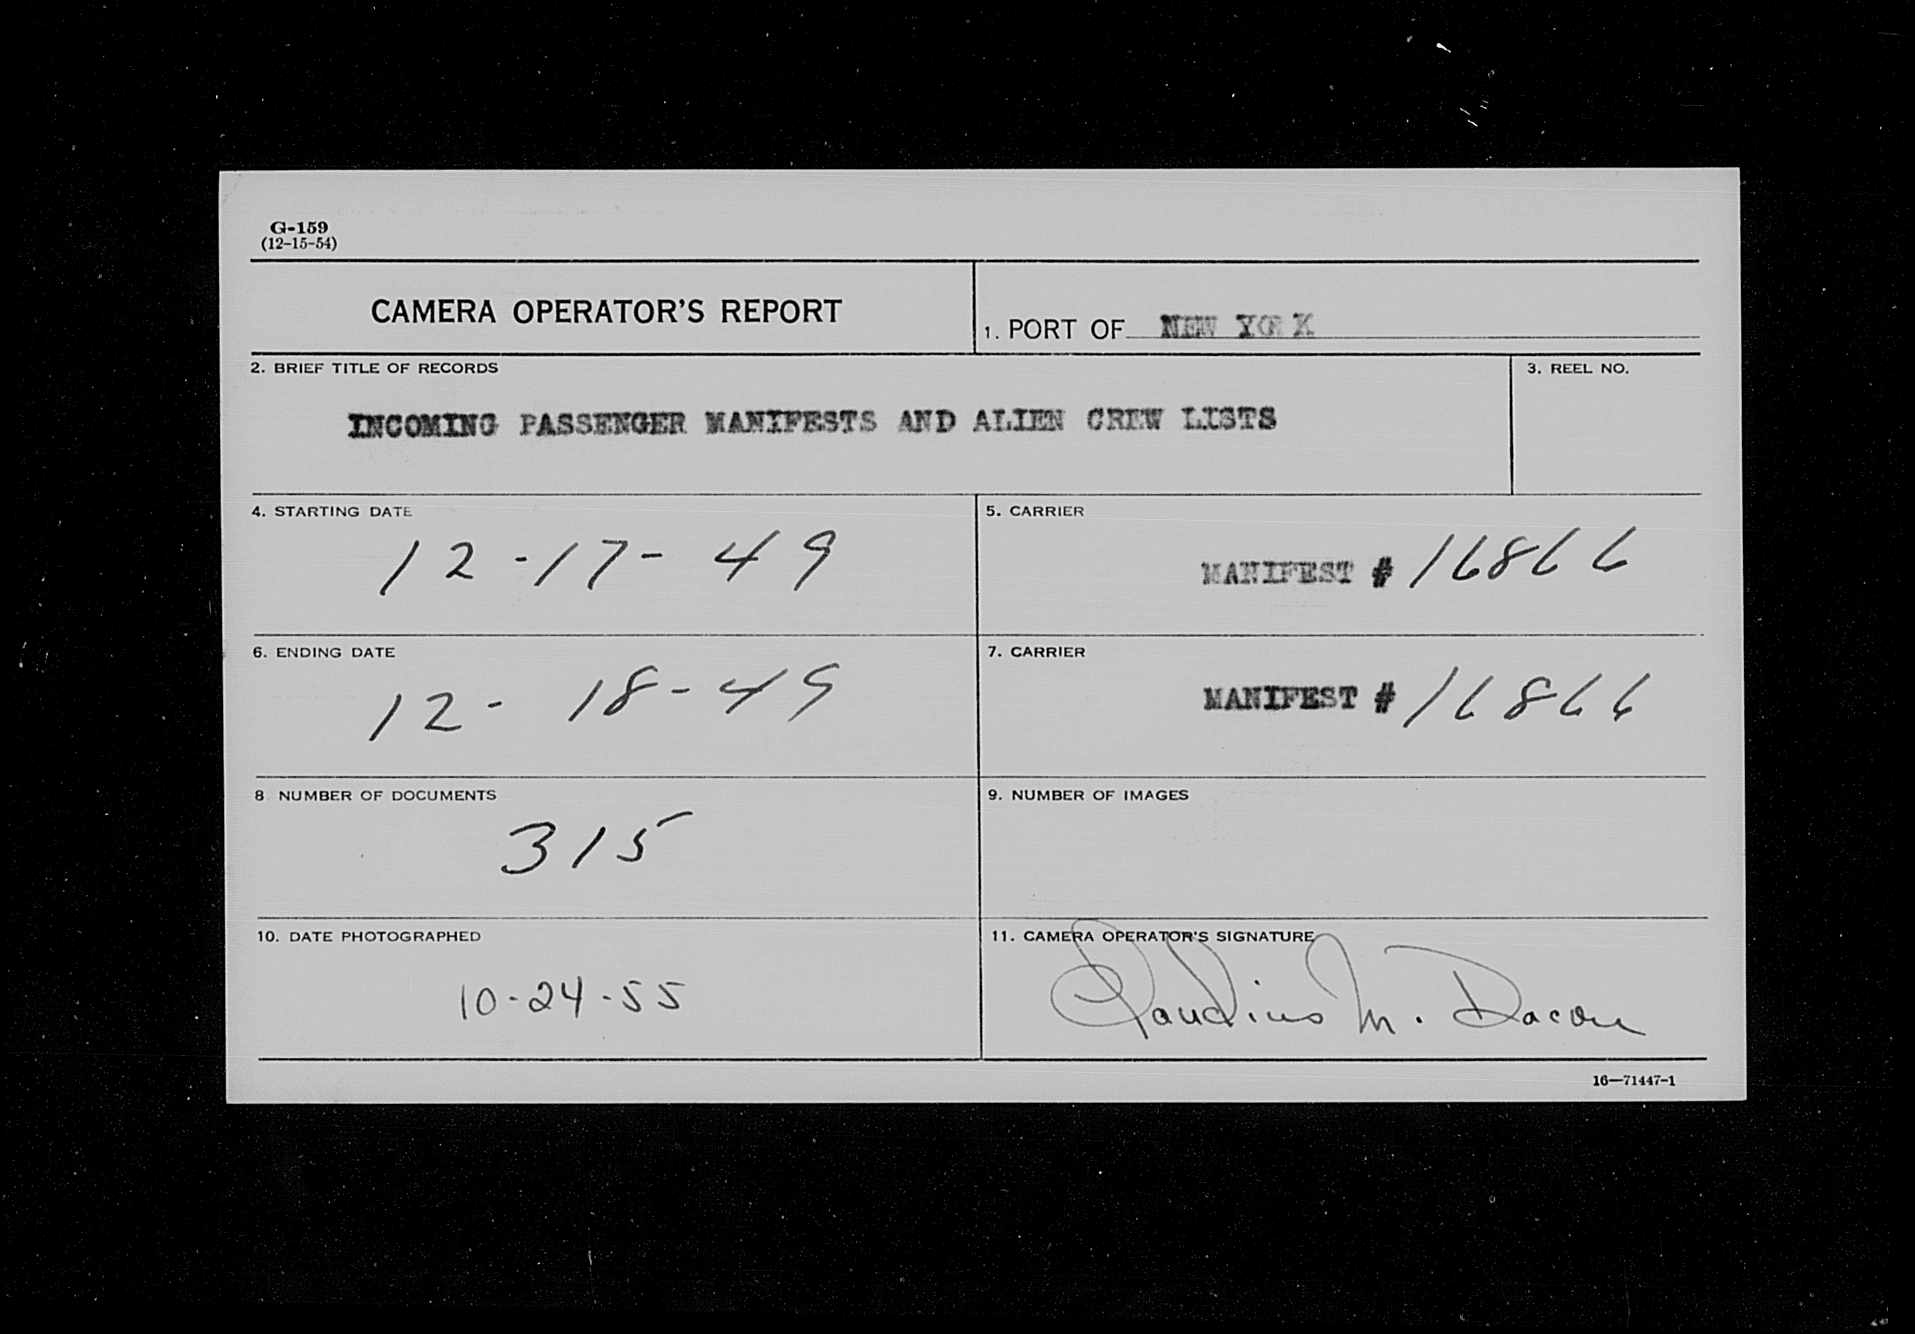 G-159
(12-15-54)
CAMERA OPERATOR'S REPORT
1. PORT OF NEW YORK
2. BRIEF TITLE OF RECORDS
3. REEL NO.
INCOMING PASSENGER MANIFESTS AND ALIEN CREW LISTS
4. STARTING DATE
5. CARRIER
12-17-49
MANIFEST # 16866
6. ENDING DATE
7. CARRIER
12-18-49
MANIFEST # 16866
8 NUMBER OF DOCUMENTS
9. NUMBER OF IMAGES
315
10. DATE PHOTOGRAPHED
11. CAMERA OPERATOR'S SIGNATURE
10-24-55
Claudius M. Dacon
16—71447-1